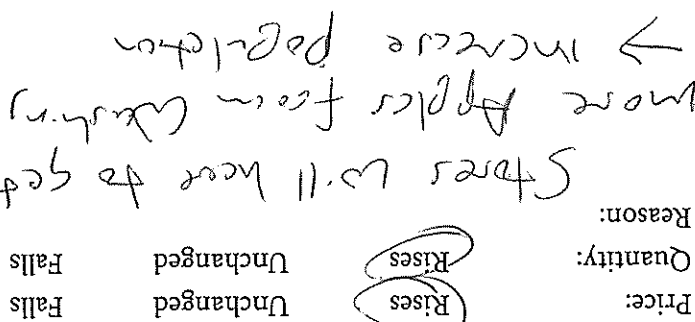 Price: Rises Unchanged Falls
Quantity: Rises Unchanged Falls
Reason:
Stores will have to get
more Apples from Washing
→ increase population